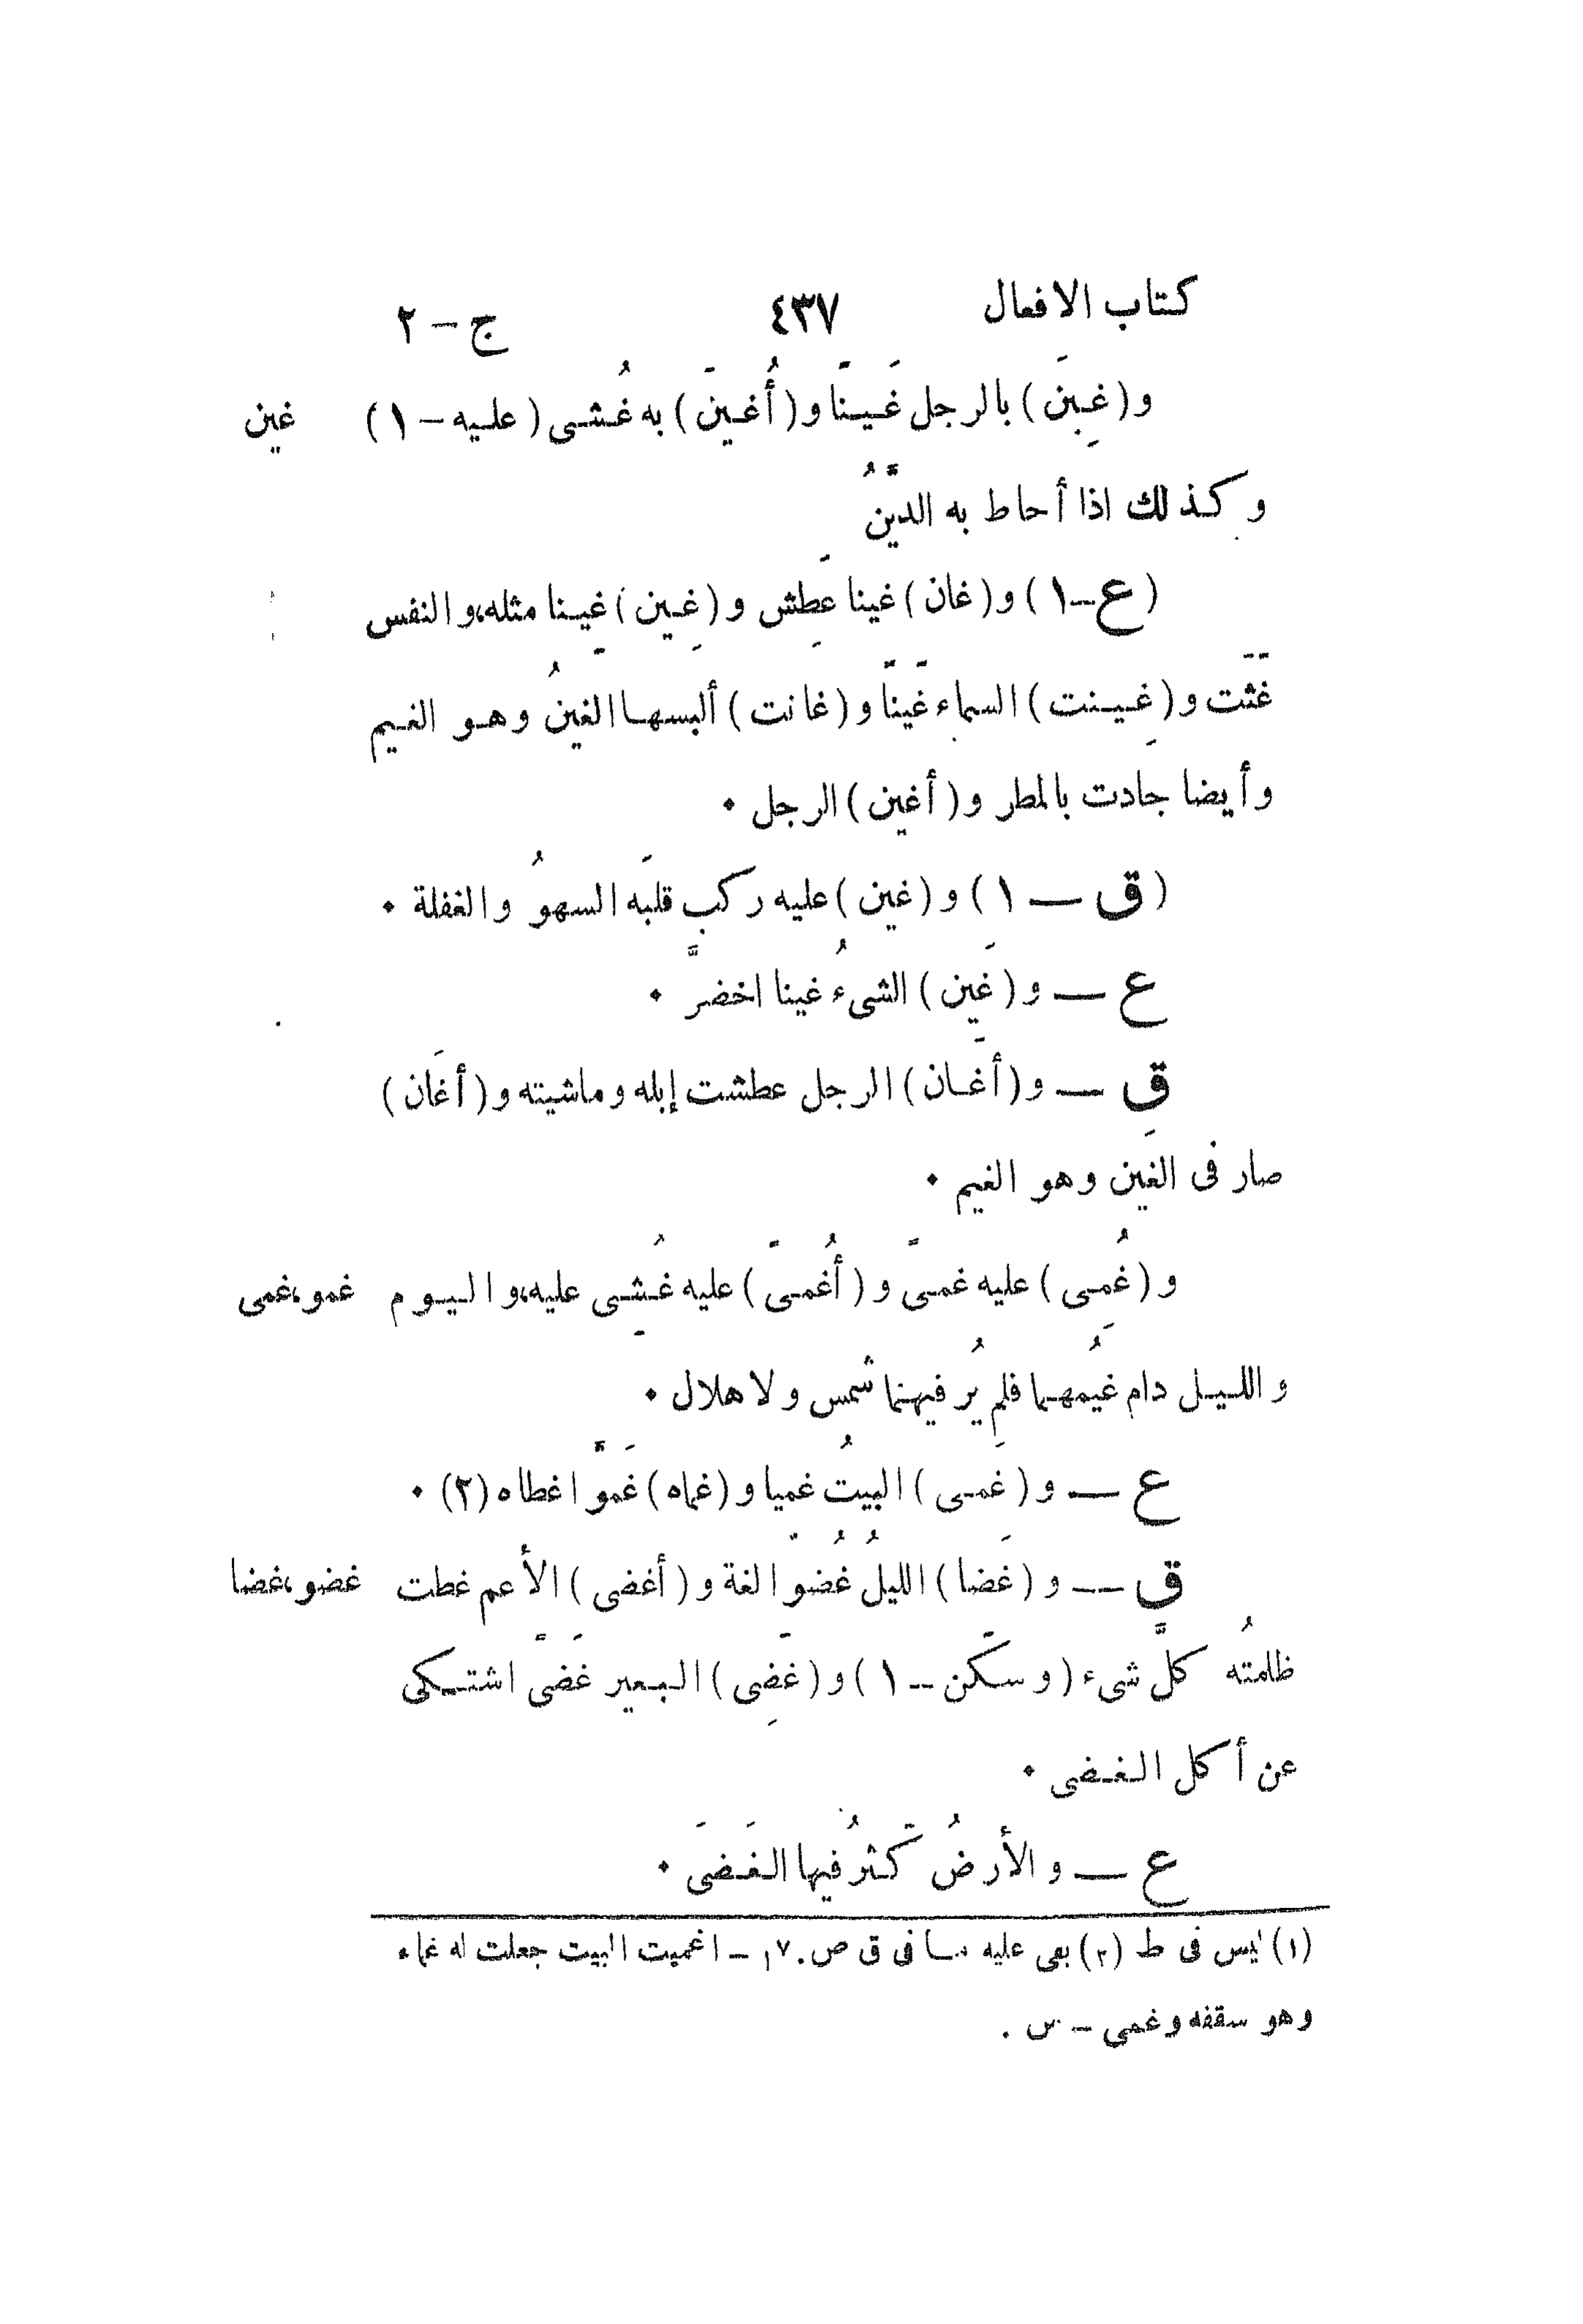 كتاب الافعال ٤٣٧ ج – ٢
و ( غِينَ ) بالرجل غَيناً و ( أُغينَ ) به غُشى ( عليه – ١ ) غين
وكذلك اذا أحاط به الدَّينُ
( ع – ١ ) و ( غان ) غينا عَطِش و ( غِين ) غينا مثله، والنفس
غَثَت و ( غِينت ) السماء غَيناً و ( غانت ) ألبسها الغينُ وهو الغيم
وأيضا جادت بالمطر و ( أغين ) الرجل ٠
( ق — ١ ) و ( غين ) عليه ركب قلبَه السهوُ والغفلة ٠
ع — و ( غَين ) الشىءُ غينا اخضرَّ ٠
ق — و ( أغان ) الرجل عطشت إبله وماشيته و ( أغَان )
صار فى الغَين وهو الغيم ٠
و ( غُمِى ) عليه غمىً و ( أُغمىَ ) عليه غُشِى عليه، واليوم غمو، غمى
والليل دام غيمُهما فلم يُر فيهما شمس ولا هلال ٠
ع — و ( غَمى ) البيتُ غميا و ( غماه ) غَموًا غطاه (٢) ٠
ق — و ( غَضا ) الليلُ غُضوًا لغة و ( أغضى ) الأعم غطت غضو، غضا
ظلمتُه كلَّ شىء ( وسكَن – ١ ) و ( غضِىَ ) البعير غَضىً اشتكى
عن أكل الغضى ٠
ع — والأرضُ كَثرُ فيها الغَضَى ٠
(١) ليس فى ط (٢) بقى عليه ما فى ق ص ١٧٠ – اغميت البيت جعلت له غماء
وهو سقفه وغمى – س .